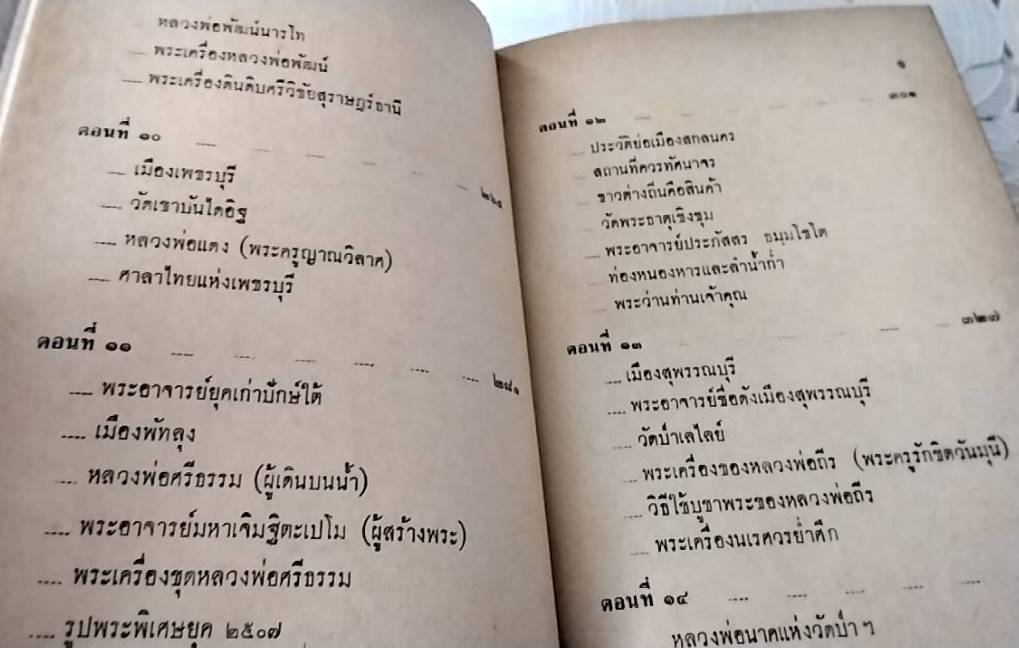 หลวงพ่อพัฒน์นารโท
.... พระเครื่องหลวงพ่อพัฒน์
.... พระเครื่องดินดิบศรีวิชัยสุราษฎร์ธานี
ตอนที่ ๑๐
.... เมืองเพชรบุรี
.... วัดเขาบันไดอิฐ
.... หลวงพ่อแดง (พระครูญาณวิลาศ)
.... ศาลาไทยแห่งเพชรบุรี
ตอนที่ ๑๑ .... .... .... .... .... .... ๒๘๑
.... พระอาจารย์ยุคเก่าปักษ์ใต้
.... เมืองพัทลุง
.... หลวงพ่อศรีธรรม (ผู้เดินบนน้ำ)
.... พระอาจารย์มหาเจิมฐิตะเปโม (ผู้สร้างพระ)
.... พระเครื่องชุดหลวงพ่อศรีธรรม
.... รูปพระพิเศษยุค ๒๕๐๗
ตอนที่ ๑๒ .... .... .... .... ๓๐๑
.... ประวัติย่อเมืองสกลนคร
.... สถานที่ควรทัศนาจร
.... ชาวต่างถิ่นคือสินค้า
.... วัดพระธาตุเชิงชุม
.... พระอาจารย์ประภัสสร ธมฺมโชโต
.... ท่องหนองหารและลำน้ำก่ำ
.... พระว่านท่านเจ้าคุณ
ตอนที่ ๑๓ .... .... .... .... ๓๒๗
.... เมืองสุพรรณบุรี
.... พระอาจารย์ชื่อดังเมืองสุพรรณบุรี
.... วัดป่าเลไลย์
.... พระเครื่องของหลวงพ่อถีร (พระครูรักขิตวันมุนี)
.... วิธีใช้บูชาพระของหลวงพ่อถีร
.... พระเครื่องนเรศวรย่ำศึก
ตอนที่ ๑๔ .... .... .... .... ....
หลวงพ่อนาคแห่งวัดป่าฯ